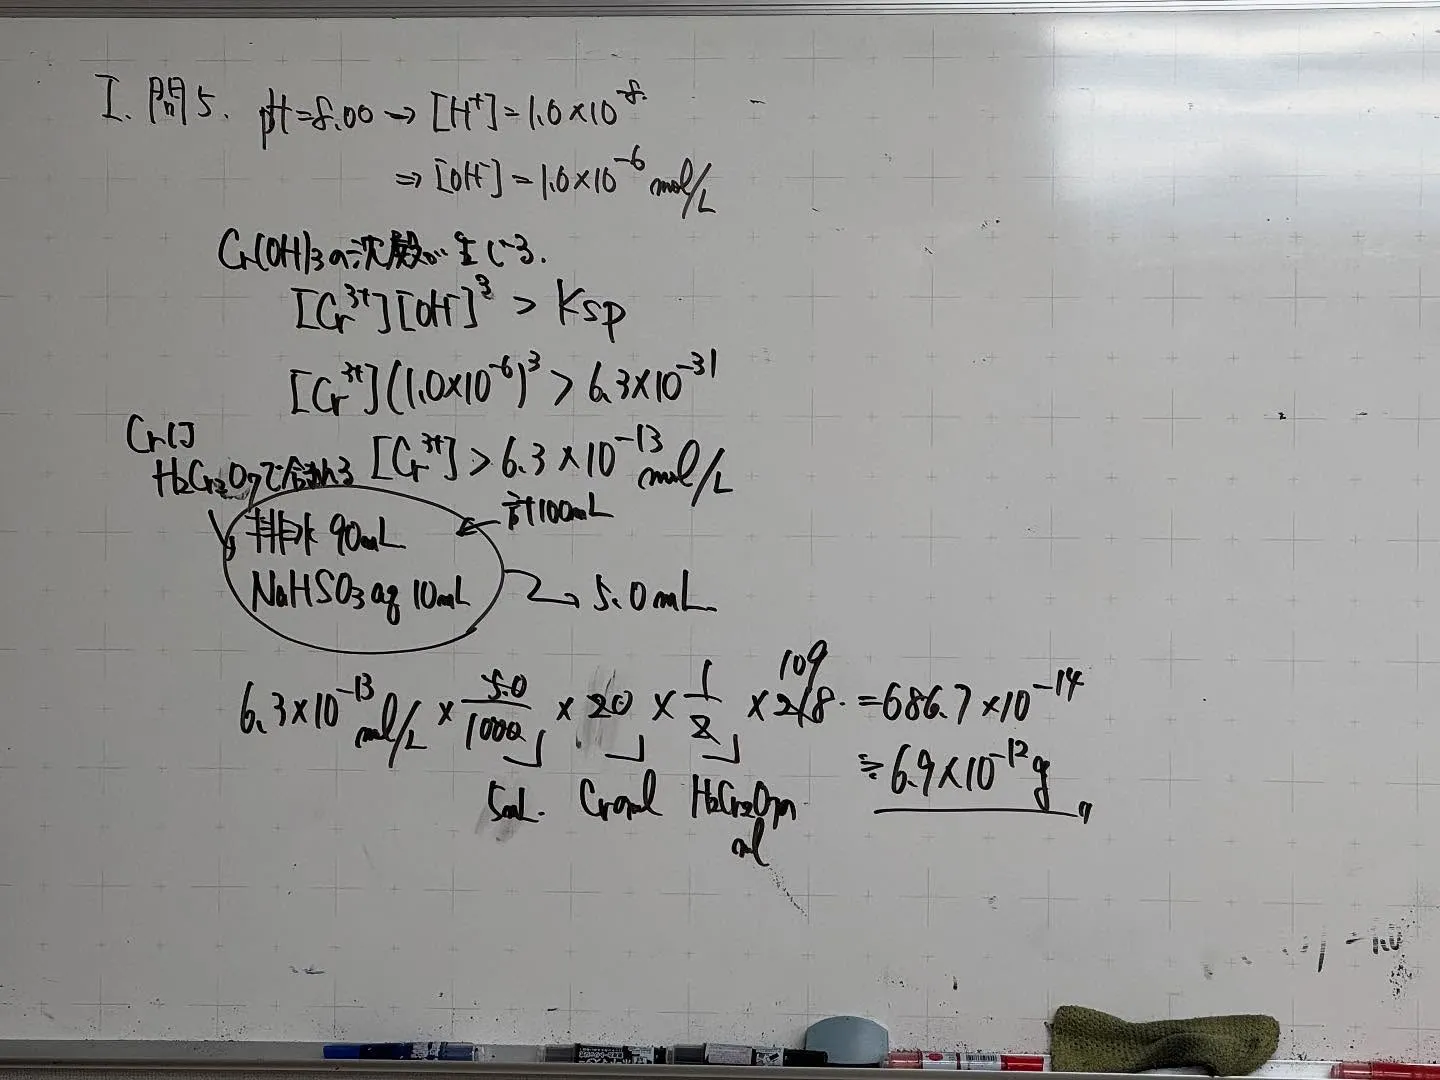 I. 問5. pH=8.00 → [H⁺]=1.0×10⁻⁸.
⇒ [OH⁻]=1.0×10⁻⁶ mol/L
Cr(OH)₃の沈殿が生じる.
[Cr³⁺][OH⁻]³ > Ksp
[Cr³⁺](1.0×10⁻⁶)³ > 6.3×10⁻³¹
[Cr³⁺] > 6.3×10⁻¹³ mol/L
Crは
H₂Cr₂O₇で含まれる
計100mL
排水 90mL
NaHSO₃aq 10mL
5.0mL
6.3×10⁻¹³ mol/L × 5.0/1000 × 20 × 1/2 × 218 = 686.7×10⁻¹⁴
109
≒ 6.9×10⁻¹² g
5mL. Crのmol H₂Cr₂O₇の
mol